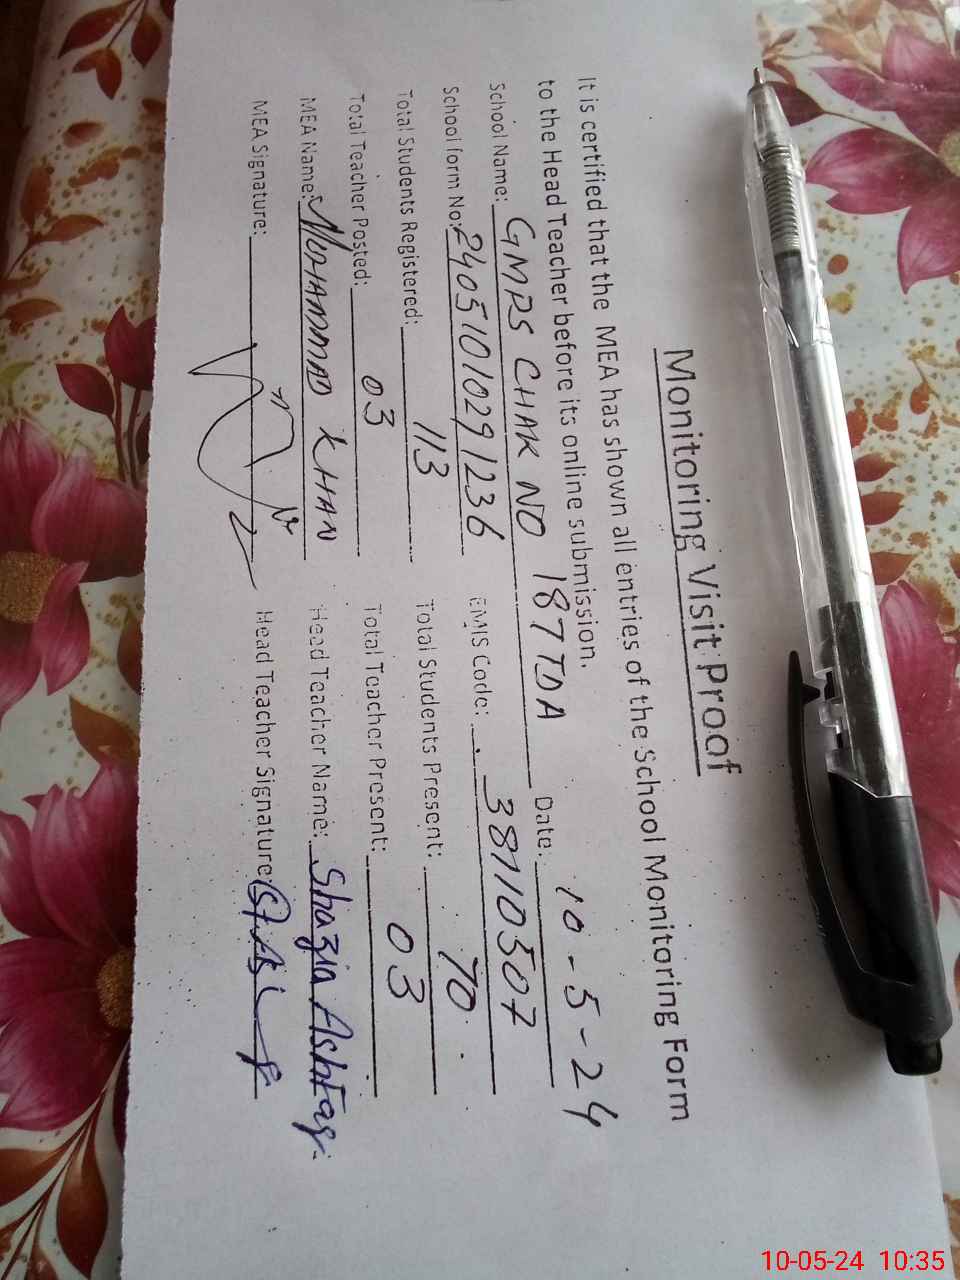 Monitoring Visit Proof
It is certified that the MEA has shown all entries of the School Monitoring Form
to the Head Teacher before its online submission.
School Name: GMPS CHAK NO 187 TDA Date: 10-5-24
School form No: 24051010291236 EMIS Code: 38110507
Total Students Registered: 113 Total Students Present: 70
Total Teacher Posted: 03 Total Teacher Present: 03
MEA Name: MUHAMMAD KHAN Head Teacher Name: Shazia Ashfaq
MEA Signature: Head Teacher Signature:
10-05-24 10:35